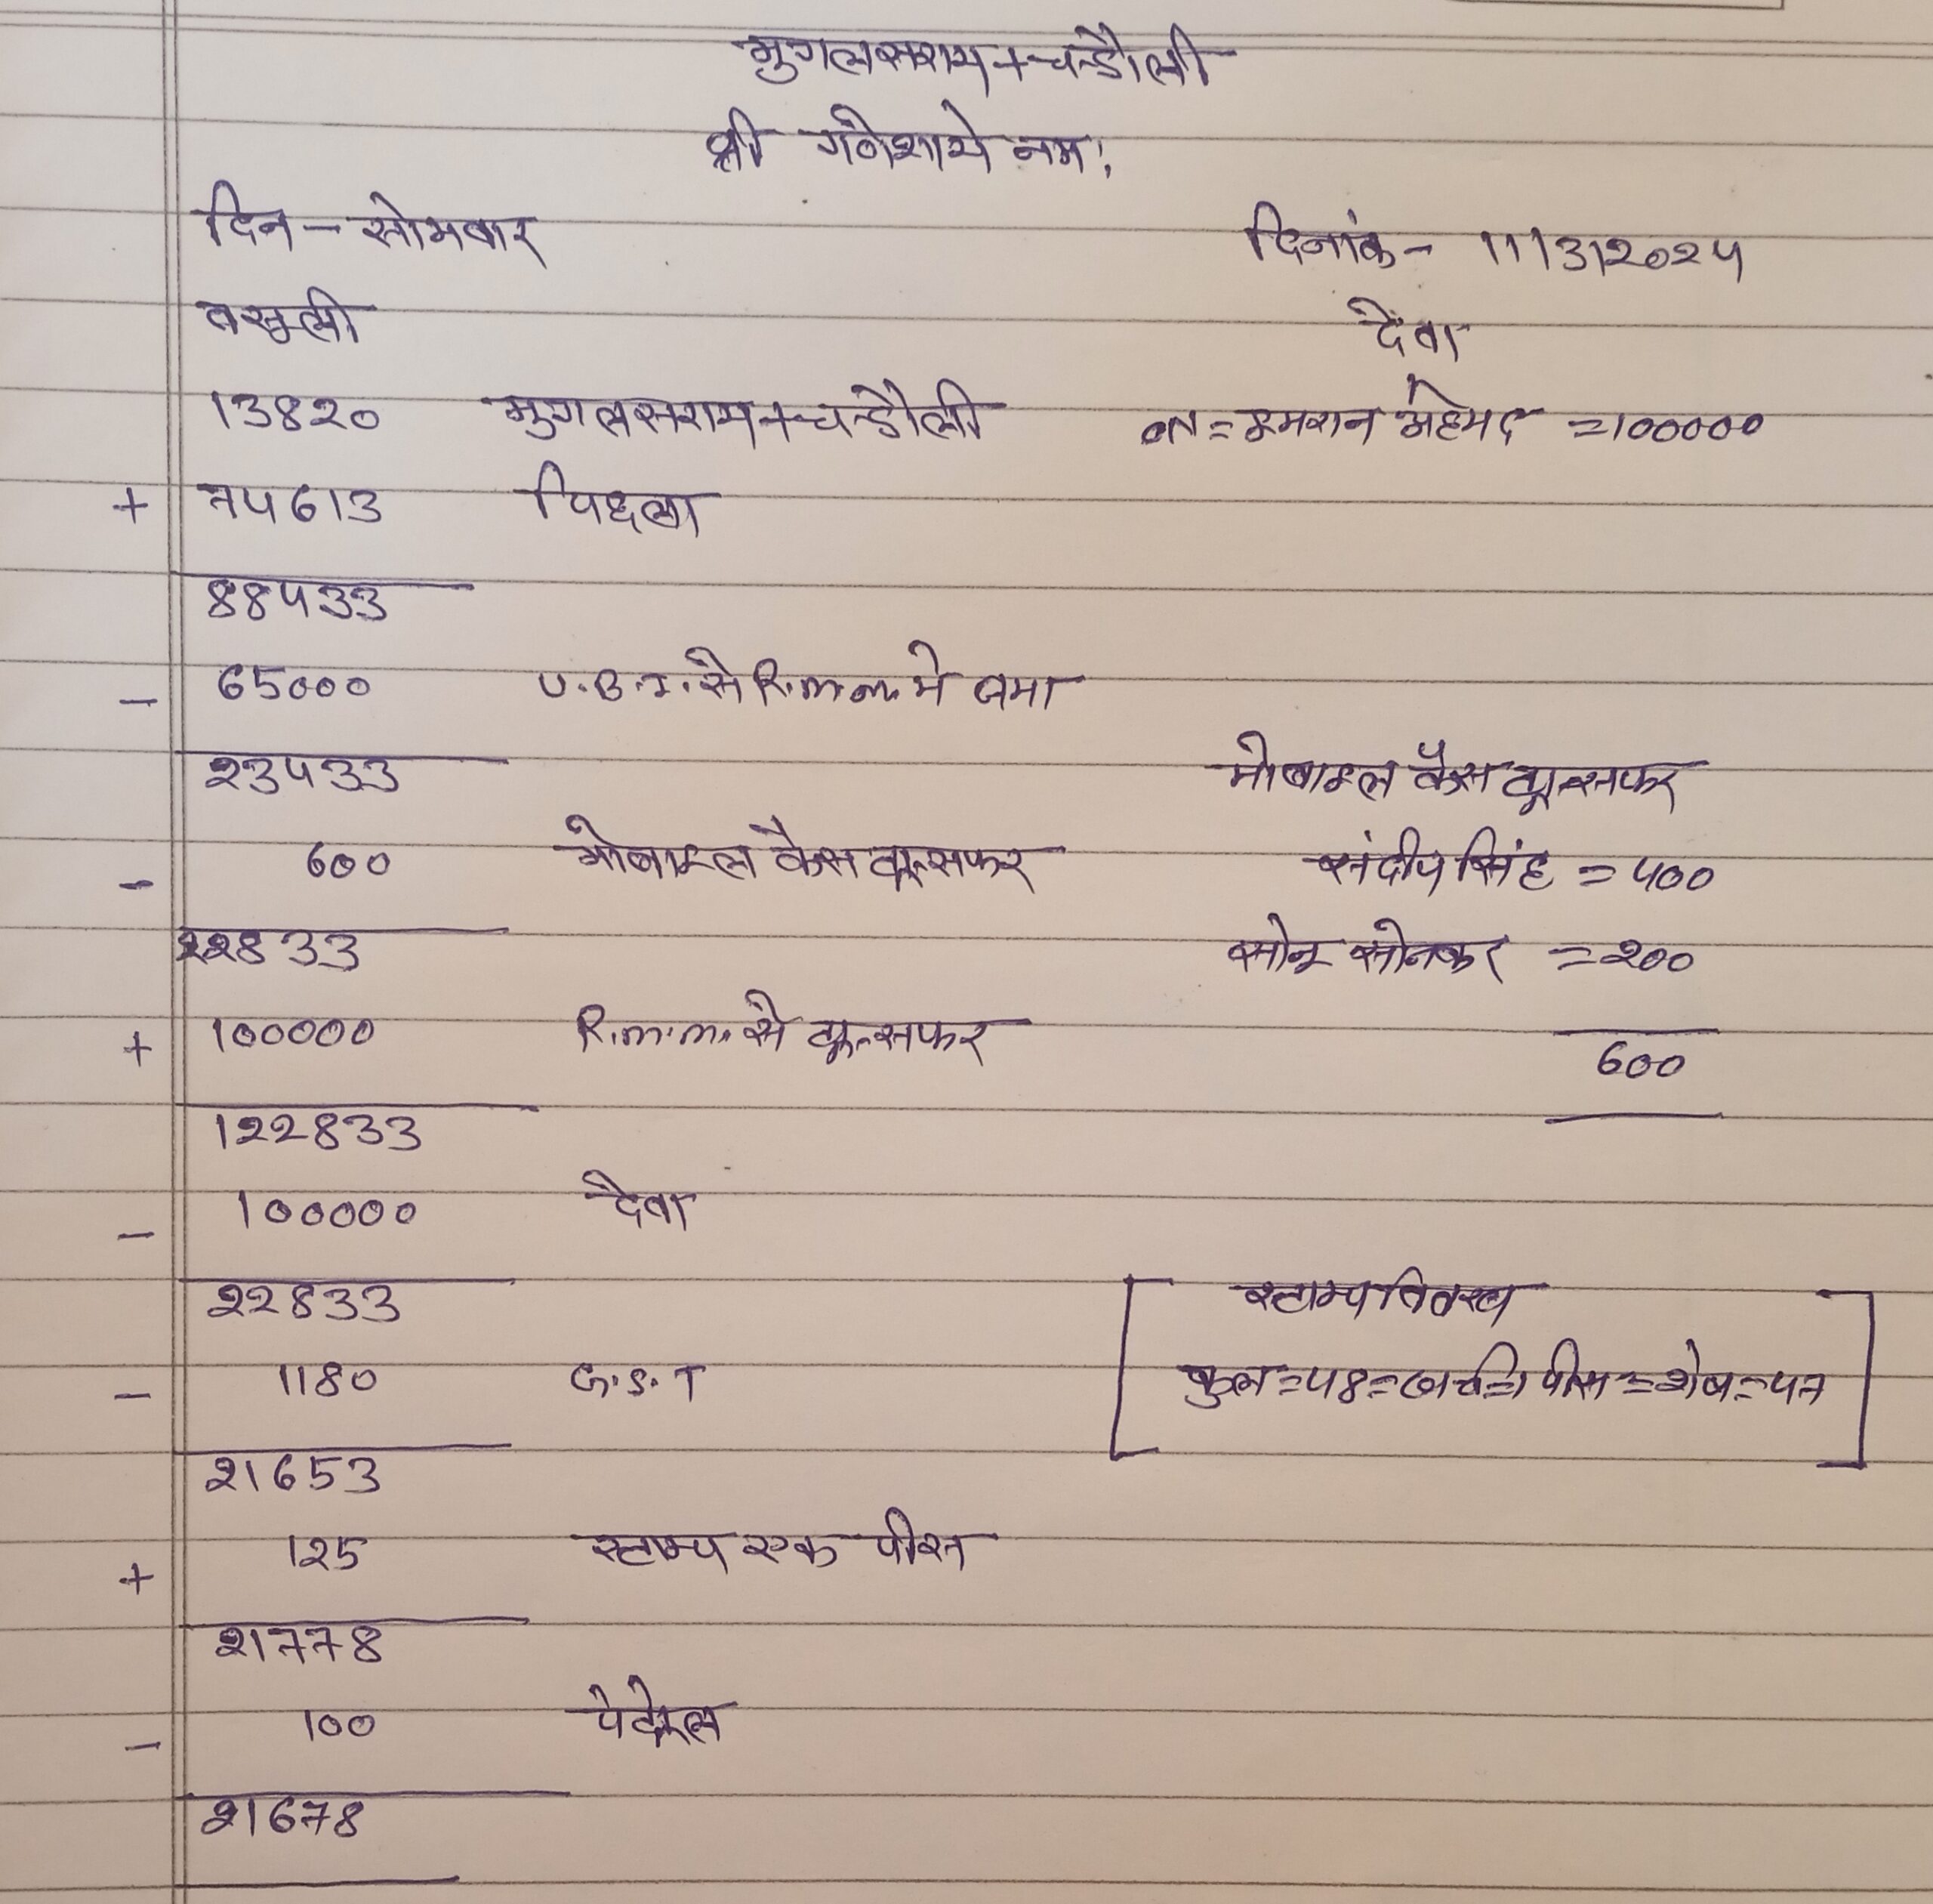 मुगलसराय + चन्दौली
श्री गणेशाये नम:
दिन - सोमवार दिनांक - 11/3/2024
वसूली देवा
13820 मुगलसराय + चन्दौली on = इमरान अहमद = 100000
+ 74613 पिछला
88433
- 65000 U.B.I. से R.m.m. मे जमा
23433 मोबाइल कैस ट्रान्सफर
- 600 मोबाइल कैस ट्रान्सफर संदीप सिंह = 400
22833 सोनू सोनकर = 200
+ 100000 R.m.m. से ट्रान्सफर 600
122833
- 100000 देवा
22833 स्टाम्प विवरण
- 1180 G.S.T कुल = 48 = खर्च = 1 पीस = शेष = 47
21653
+ 125 स्टाम्प एक पीस
21778
- 100 पेट्रोल
21678